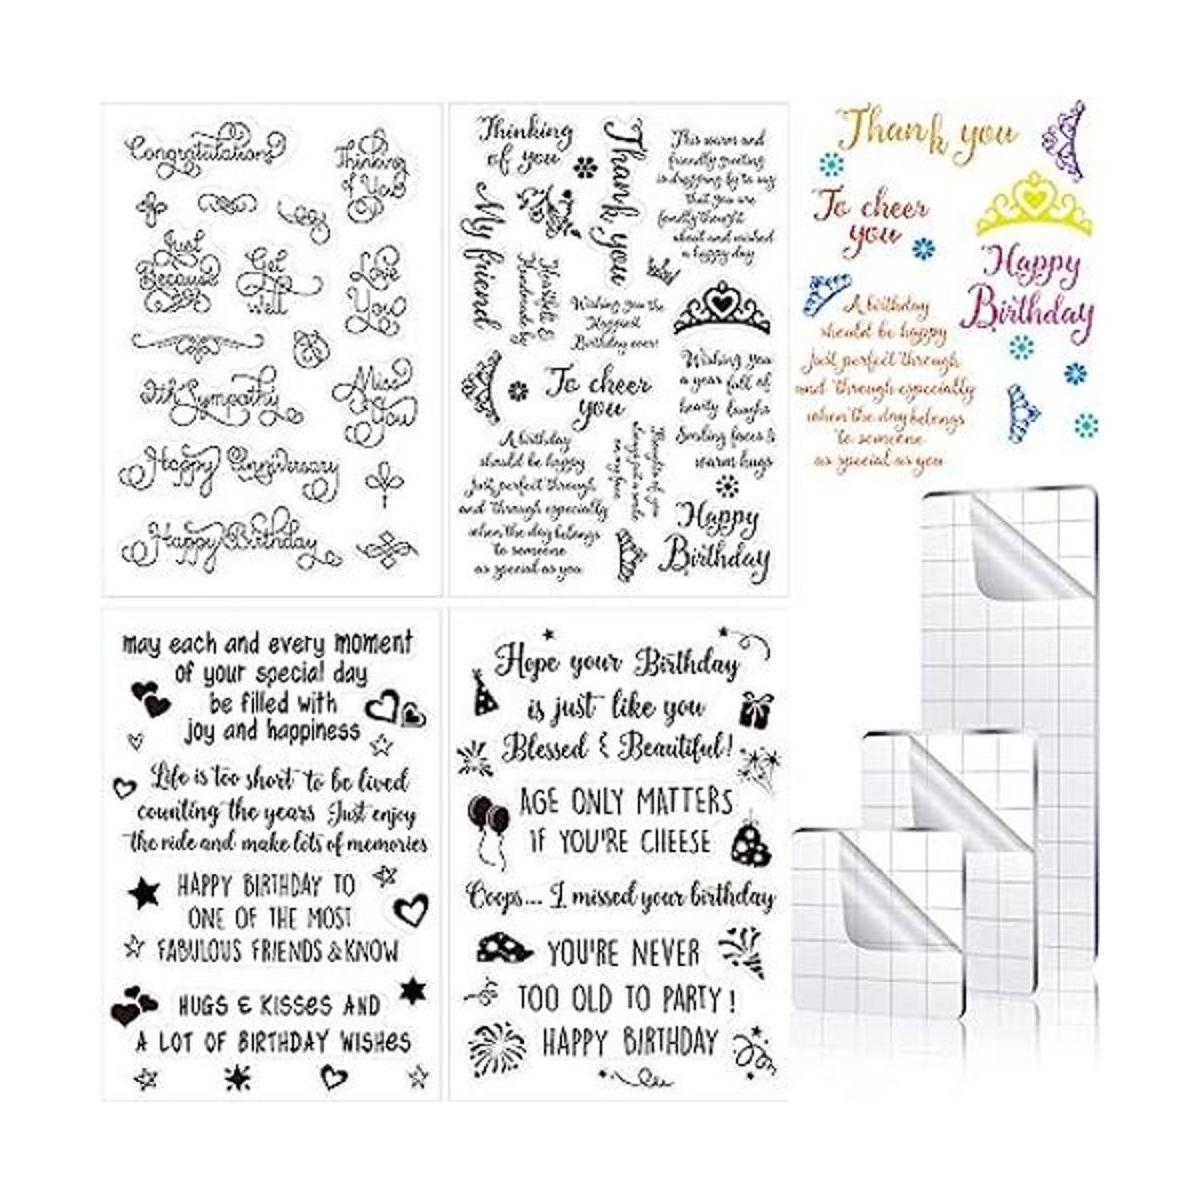 Congratulations
Thinking
of You
Just
Because
Get
Well
Love
You
With Sympathy
Miss
You
Happy Anniversary
Happy Birthday
Thinking
of you
Thank you
This warm and
friendly greeting
is dropping by to say
that you are
fondly thought
about and wished
a happy day
My friend
Heartfelt &
Handmade by
Wishing you the
Happiest
Birthday ever!
To cheer
you
Wishing you
a year full of
hearty laughs
Smiling faces &
warm hugs
A birthday
should be happy
just perfect through
and through especially
when the day belongs
to someone
as special as you
Thoughts of you
always put a smile
on my face
Happy
Birthday
Thank you
To cheer
you
Happy
Birthday
A birthday
should be happy
just perfect through
and through especially
when the day belongs
to someone
as special as you
may each and every moment
of your special day
be filled with
joy and happiness
Life is too short to be lived
counting the years Just enjoy
the ride and make lots of memories
HAPPY BIRTHDAY TO
ONE OF THE MOST
FABULOUS FRIENDS & KNOW
HUGS & KISSES AND
A LOT OF BIRTHDAY WISHES
Hope your Birthday
is just like you
Blessed & Beautiful!
AGE ONLY MATTERS
IF YOU'RE CHEESE
Oops... I missed your birthday
YOU'RE NEVER
TOO OLD TO PARTY!
HAPPY BIRTHDAY